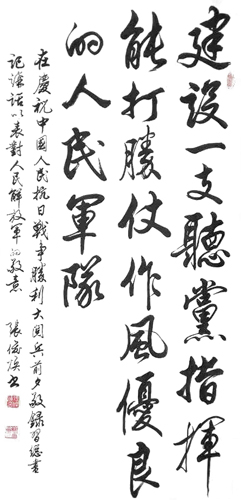 建設一支聽黨指揮
能打勝仗作風優良
的人民軍隊
在慶祝中國人民抗日戰爭勝利大閱兵前夕敬錄習總書
記講話以表對人民解放軍的敬意
張俊瑛書